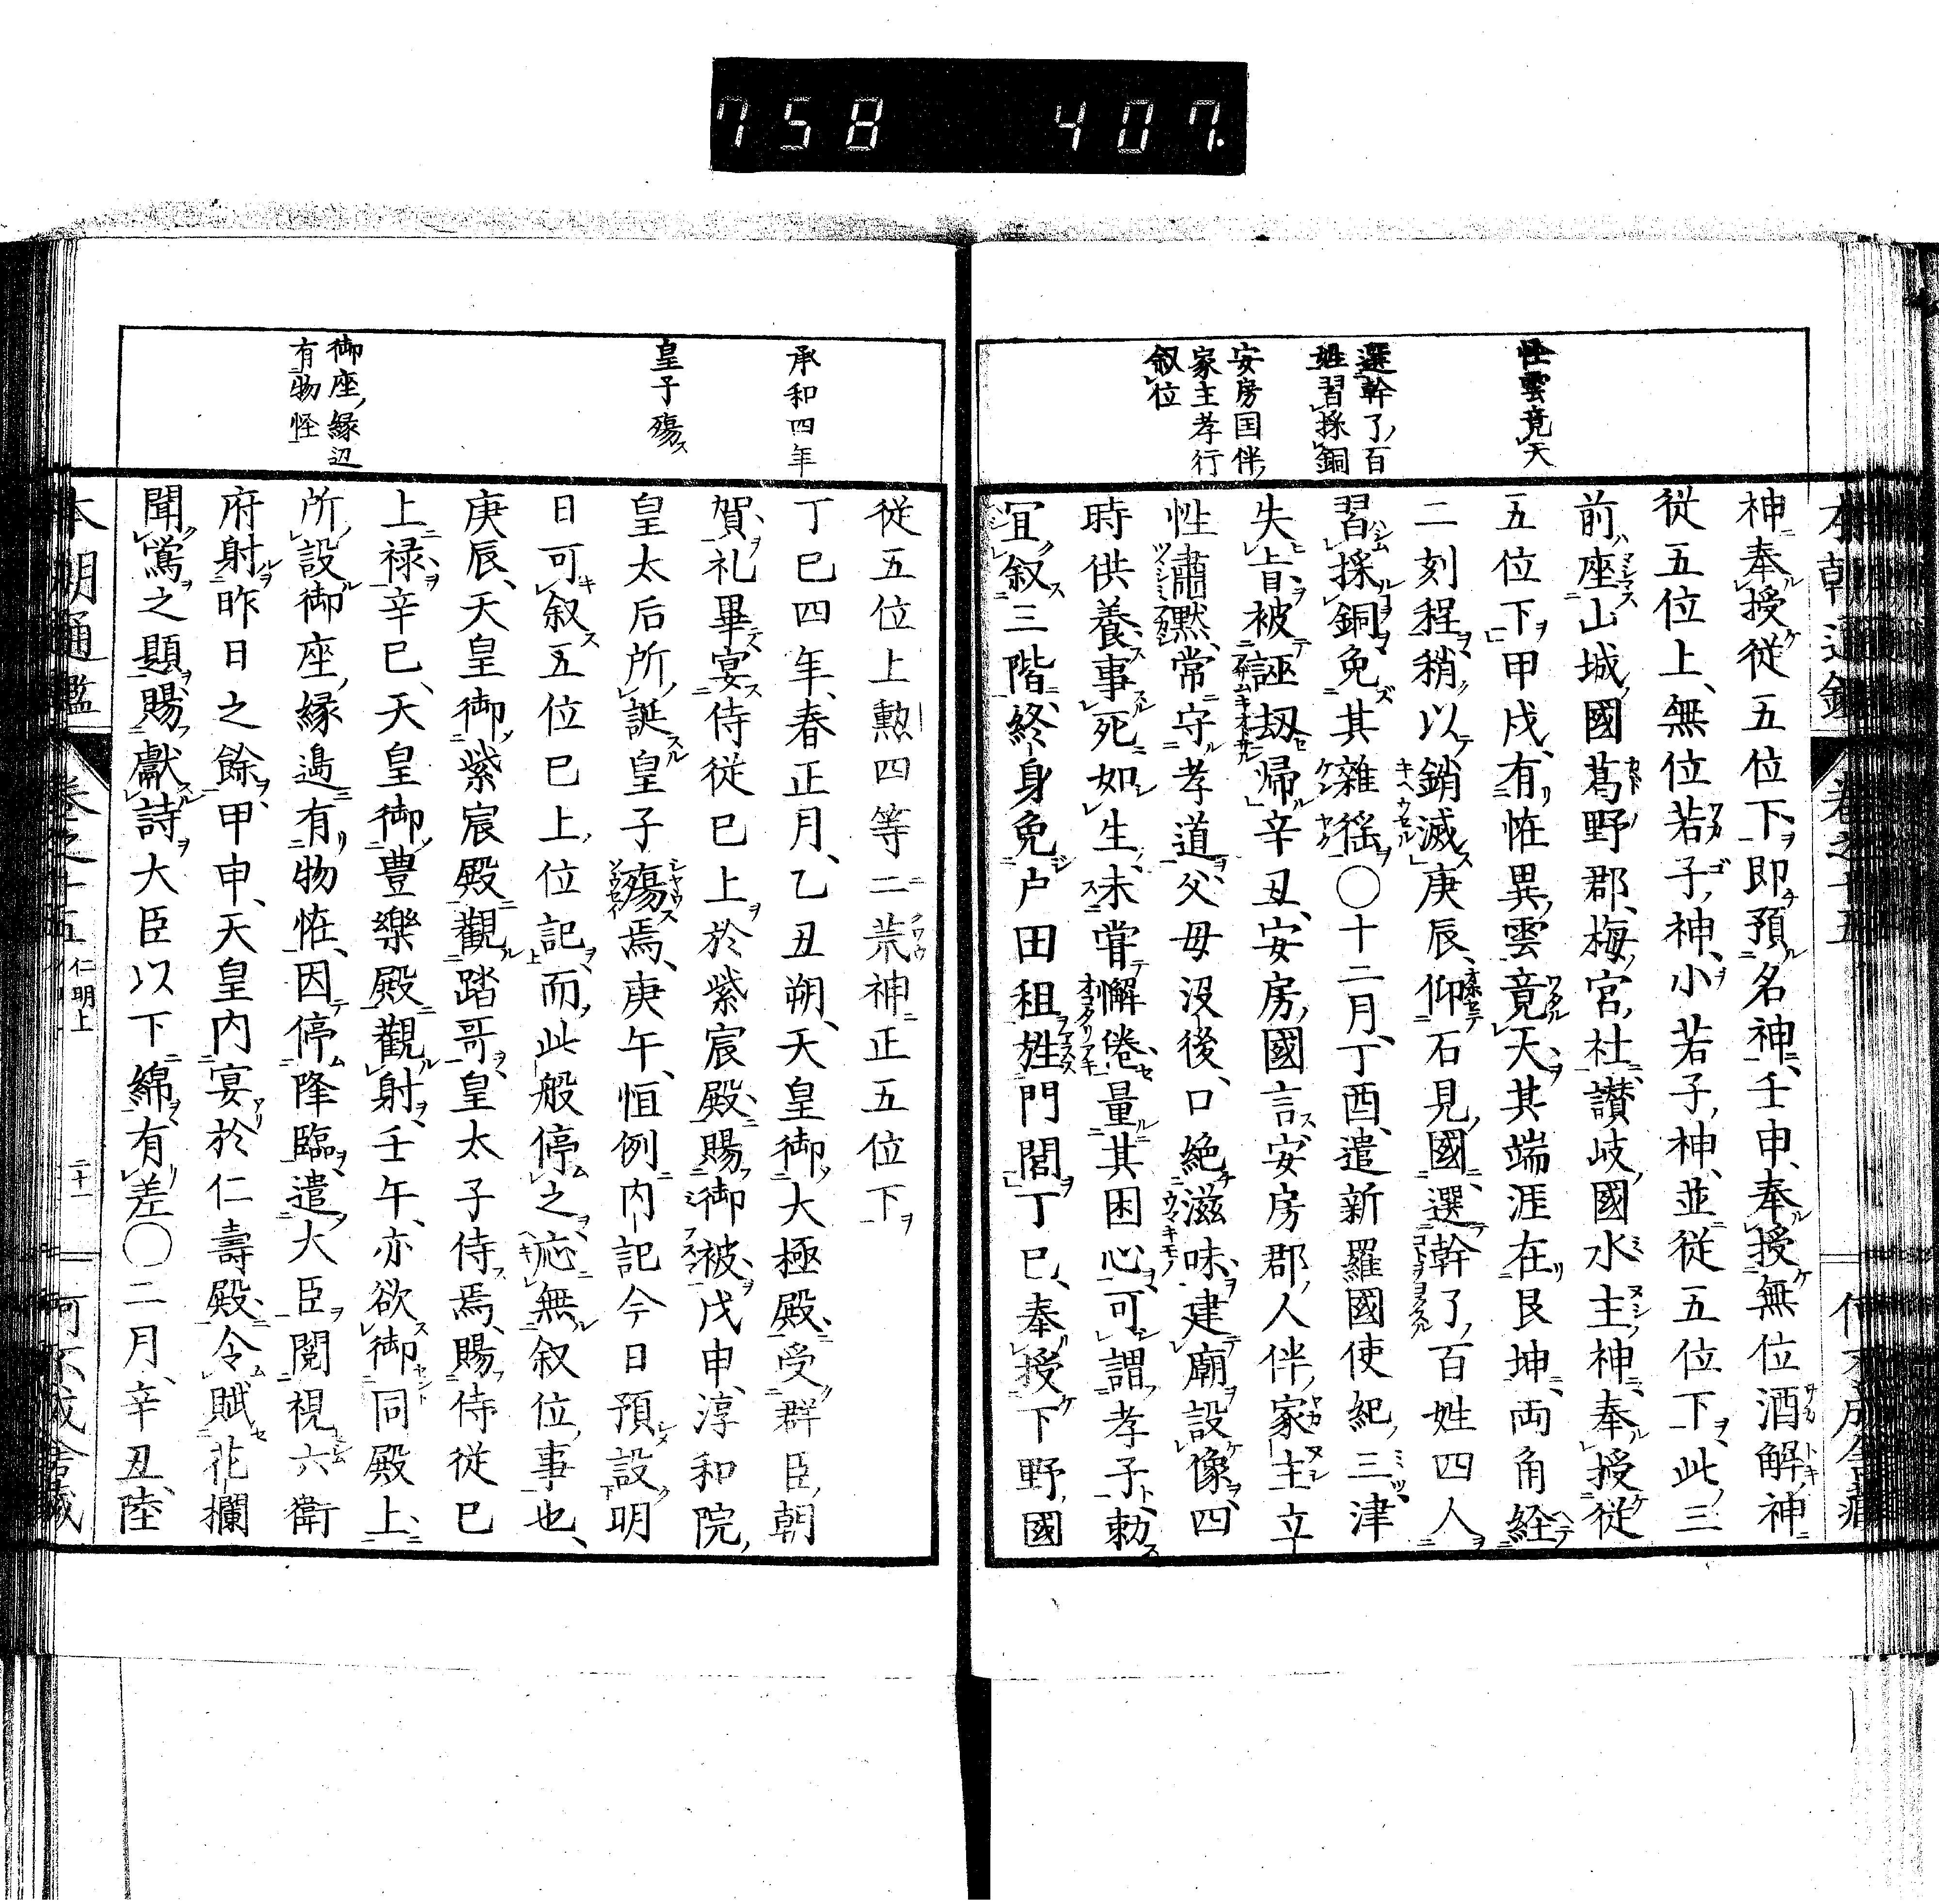 758 407.
怪雲竟天
選幹了百
姓習採銅
安房国伴
家主孝行
叙位
神奉授從五位下即預名神壬申奉授無位酒解神
從五位上無位若子神小若子神並從五位下此三
前座山城國葛野郡梅宮社讃岐國水主神奉授從
五位下甲戌有恠異雲竟天其端涯在艮坤両角経
二刻程稍以銷滅庚辰仰石見國選幹了百姓四人
習採銅免其雜徭○十二月丁酉遣新羅國使紀三津
失旨被誣刼帰辛丑安房國言安房郡人伴家主立
性肅黙常守孝道父母沒後口絶滋味建廟設像四
時供養事死如生未甞懈倦量其困心可謂孝子勅
冝叙三階終身免户田租旌門閭丁巳奉授下野國
承和四年
皇子殤
御座縁辺
有物怪
從五位上勲四等二荒神正五位下
丁巳四年春正月乙丑朔天皇御大極殿受群臣朝
賀礼畢宴侍從巳上於紫宸殿賜御被戊申淳和院
皇太后所誕皇子殤焉庚午恒例内記今日預設明
日可叙五位巳上位記而此般停之応無叙位事也
庚辰天皇御紫宸殿觀踏哥皇太子侍焉賜侍從巳
上禄辛巳天皇御豊樂殿觀射壬午亦欲御同殿上
所設御座縁邉有物恠因停降臨遣大臣閲視六衛
府射昨日之餘甲申天皇内宴於仁壽殿令賦花欄
聞鶯之題賜獻詩大臣以下綿有差○二月辛丑陸
仁明上
二十一